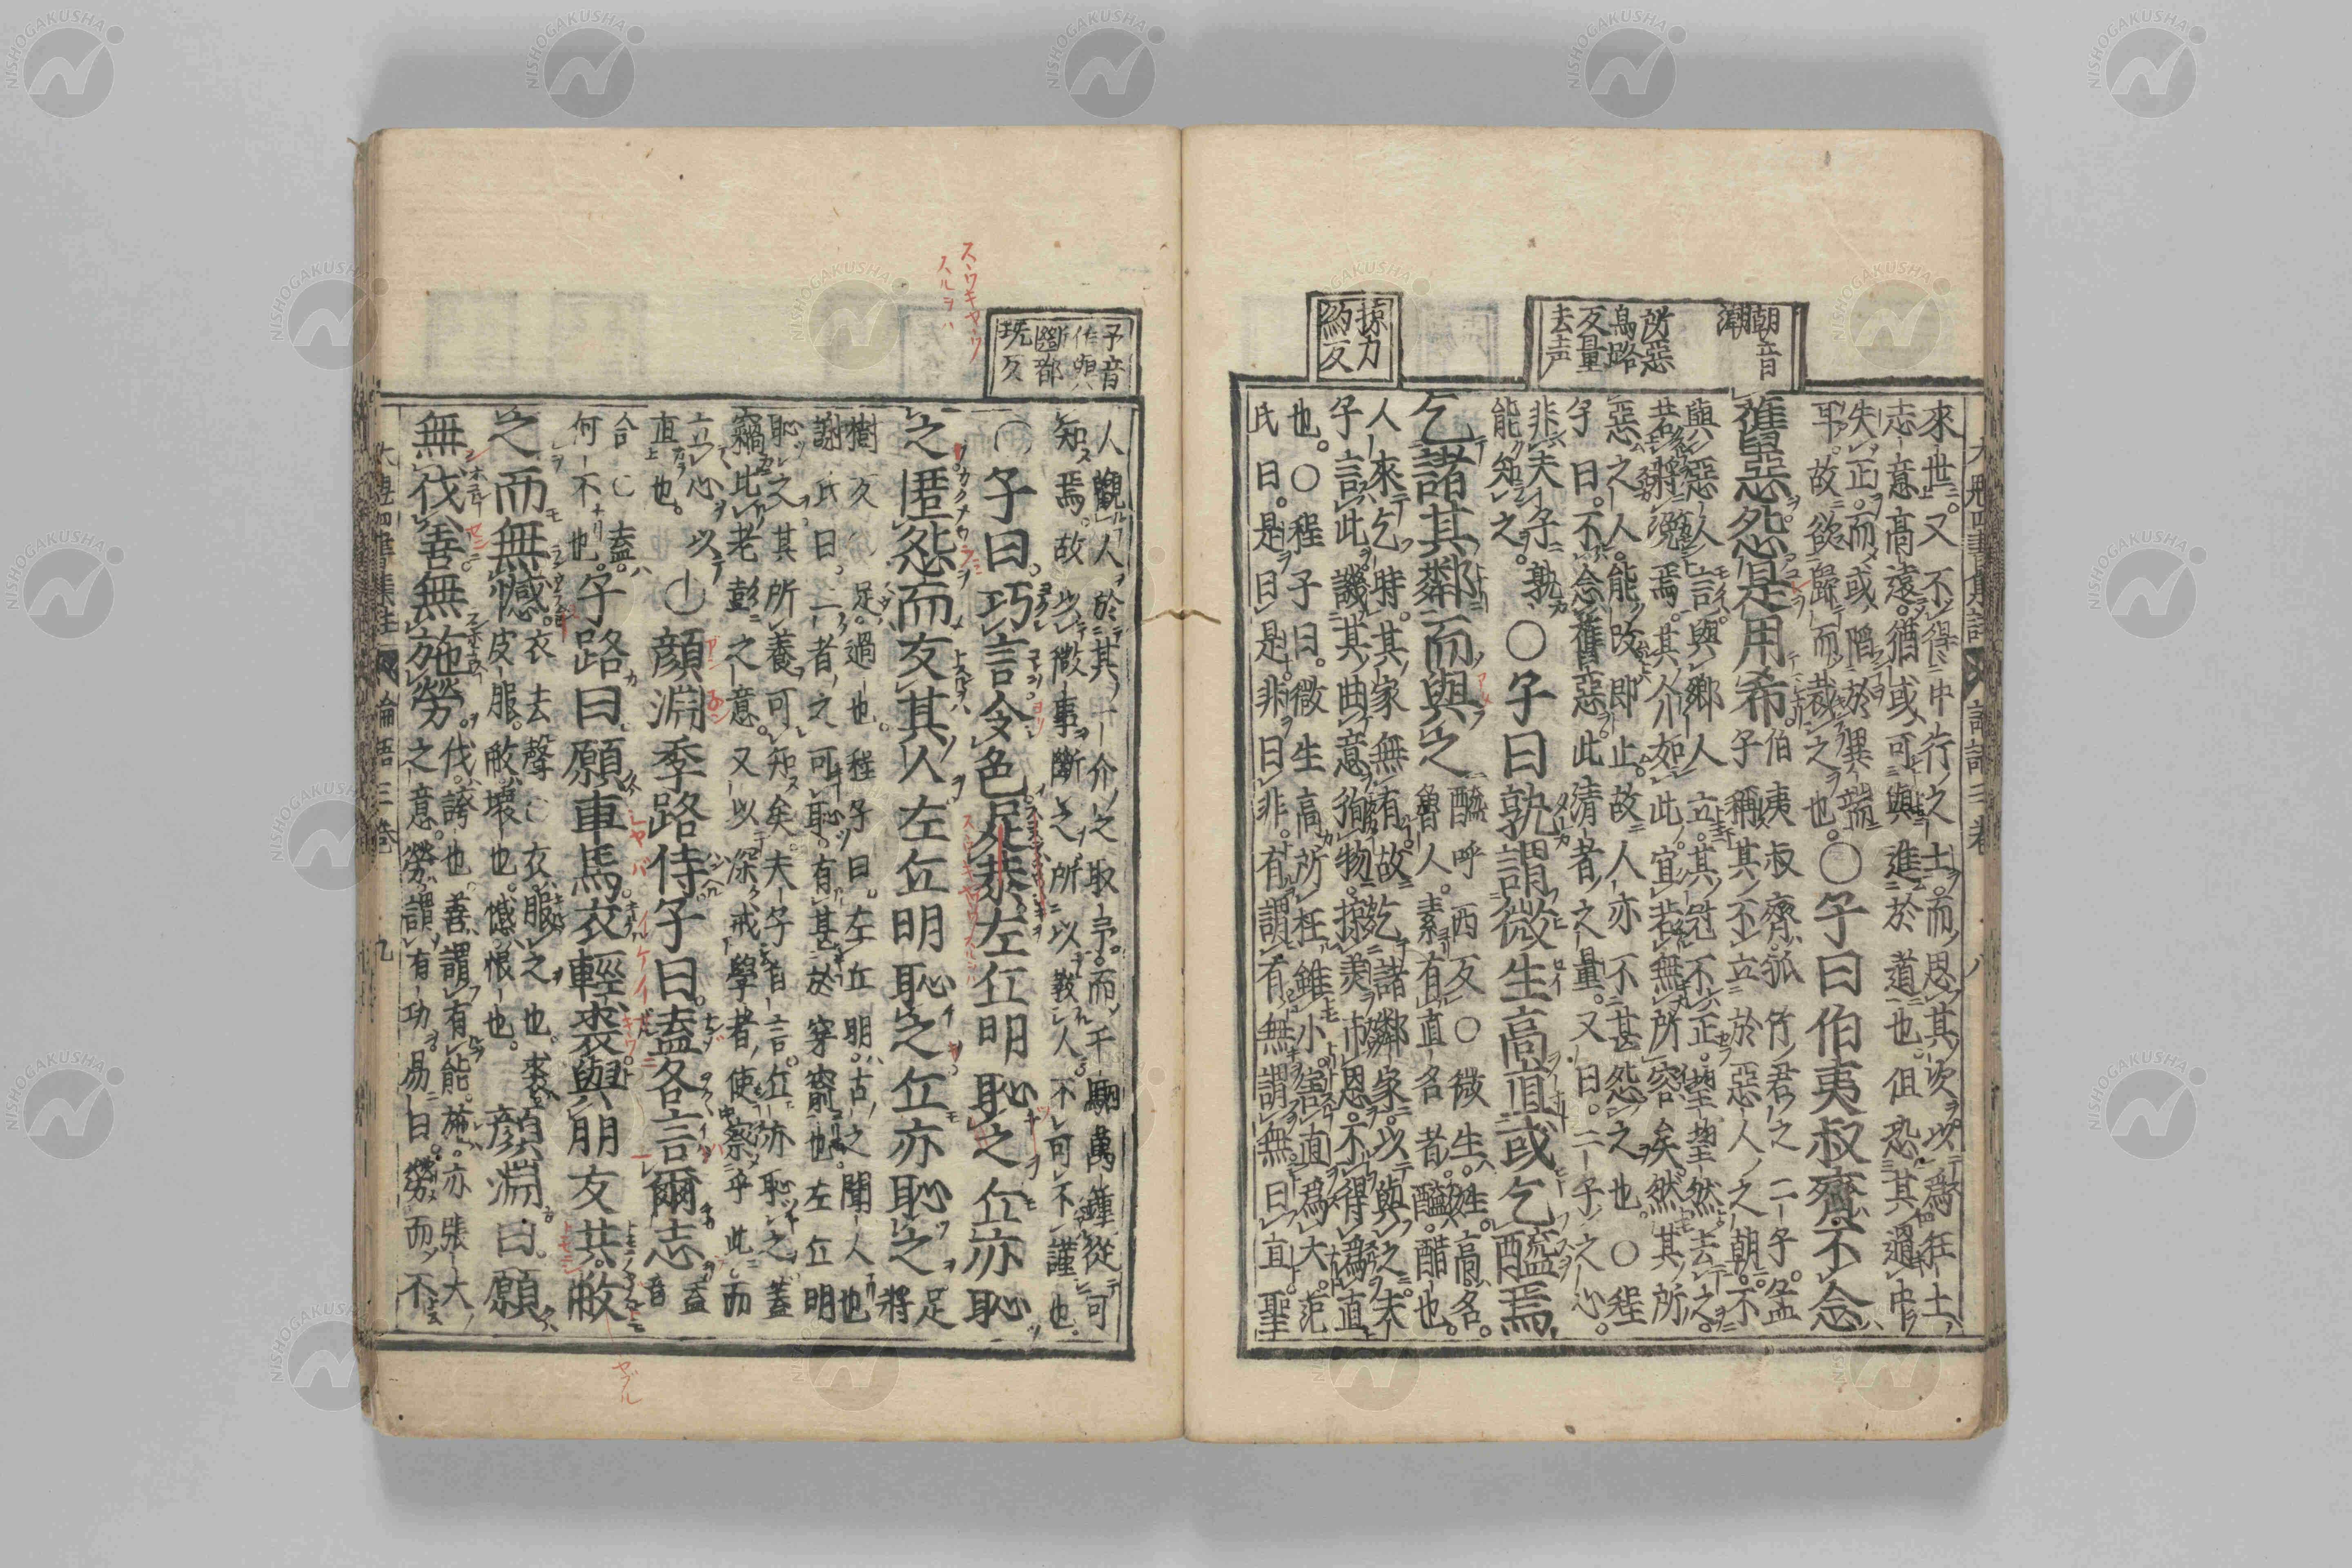 朝音
潮
所惡
烏路
反量
去声
掠力
約反
大冊四書集註 論語三卷 八
來世。又不得中行之士。而思其次。以爲狂士
志意高遠。猶或可與進於道也。但恐其過中
失正。而或陷於異端
耳。故欲歸而裁之也。○子曰伯夷叔齊不念
舊惡怨是用希。伯夷叔齊。孤竹君之二子。孟
子稱其不立於惡人之朝。不
與惡人言與鄉人立。其冠不正。望望然去之。
若將浼焉。其介如此。宜若無所容矣然其所
惡之人。能改即止。故人亦不甚怨之也。○程
子曰。不念舊惡。此清者之量。又曰。二子之心。
非夫子孰
能知之。○子曰孰謂微生高直或乞醯焉
乞諸其鄰而與之 醯呼西反○微生。姓。高。名。
魯人。素有直名者。醯。醋也。
人來乞時。其家無有故乞諸鄰家。以與之。夫
子言此。譏其曲意徇物。掠美市恩。不得爲直
也。○程子曰。微生高所枉雖小。害直爲大。范
氏曰。是曰是。非曰非。有謂有。無謂無。曰直。聖
予音
斷都
玩反
スウキヤウ
スルヲハ
人觀人於其一介之取予。而千駟萬鐘從可
知焉。故以微事斷之所以教人不可不謹也。
○子曰。巧言令色足恭左丘明恥之丘亦恥
之匿怨而友其人左丘明恥之丘亦恥之 足將
樹反○足。過也。程子曰。左丘明。古之聞人也
謝氏曰。二者之可恥。有甚於穿窬也。左丘明
恥之其所養可知矣。夫子自言。丘亦恥之。蓋
竊比老彭之意。又以深戒學者使察乎此而
立心以
直也。○顏淵季路侍子曰。盍各言爾志 盍音
合○盍。
何不也。子路曰。願車馬衣輕裘與朋友共敝
之而無憾。衣去聲○衣服之也。裘
皮服。敝壞也。憾恨也。顏淵曰。願
無伐善無施勞。伐。誇也。善。謂有能。施。亦張大
之意。勞。謂有功。易曰。勞而不
ヤブル
四書集註 論語三卷 九
NISHOGAKUSHA